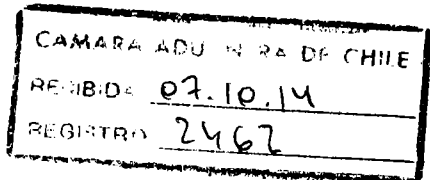 CAMARA ADU N RA DE CHILE
RECIBIDA 07.10.14
REGISTRO 2462